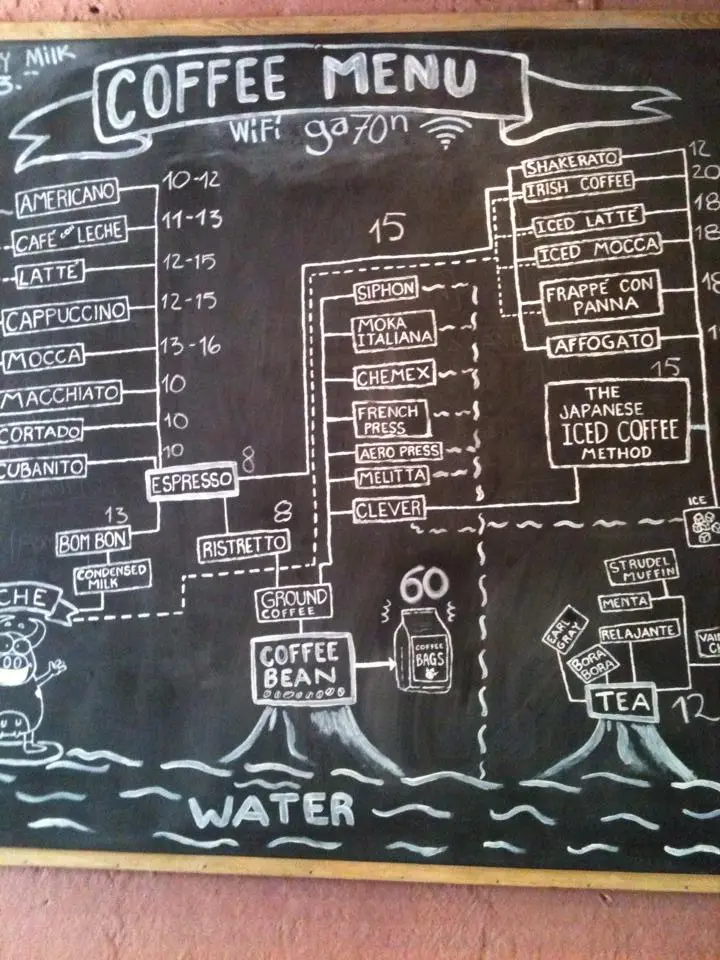 Y Milk
3.-
COFFEE MENU
WiFi ga70n
AMERICANO 10-12
CAFÉ con LECHE 11-13
LATTÉ 12-15
CAPPUCCINO 12-15
MOCCA 13-16
MACCHIATO 10
CORTADO 10
CUBANITO 10
ESPRESSO 8
BOM BON 13
CONDENSED
MILK
RISTRETTO 8
CHE
GROUND
COFFEE
COFFEE
BEAN
60
COFFEE
BAGS
15
SIPHON
MOKA
ITALIANA
CHEMEX
FRENCH
PRESS
AERO PRESS
MELITTA
CLEVER
SHAKERATO 12
IRISH COFFEE 20
ICED LATTÉ 18
ICED MOCCA 18
FRAPPÉ CON
PANNA
18
AFFOGATO
15
THE
JAPANESE
ICED COFFEE
METHOD
ICE
STRUDEL
MUFFIN
MENTA
RELAJANTE
EARL
GRAY
BORA
BORA
TEA 12
WATER